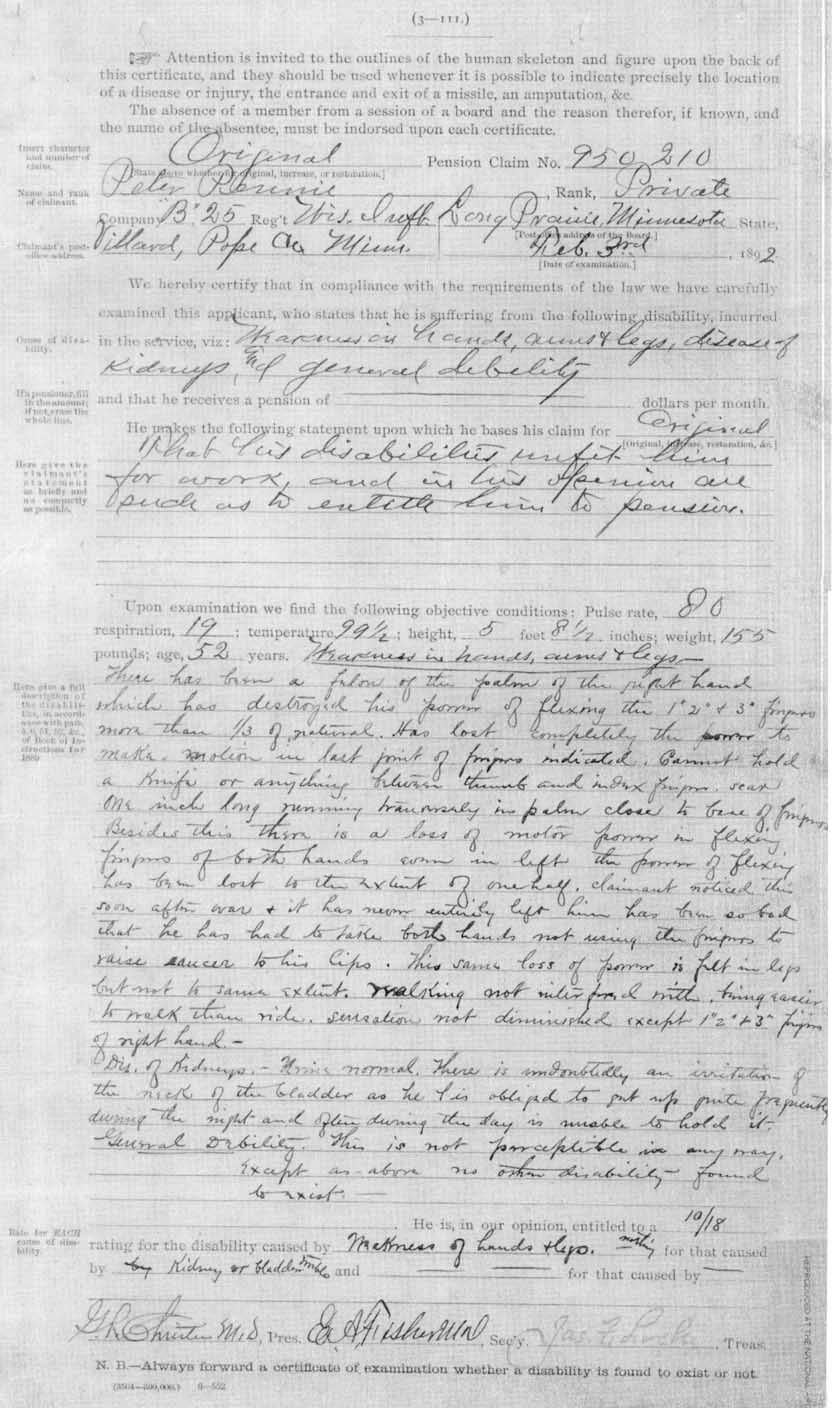 (3—111.)
Attention is invited to the outlines of the human skeleton and figure upon the back of
this certificate, and they should be used whenever it is possible to indicate precisely the location
of a disease or injury, the entrance and exit of a missile, an amputation, &c.
The absence of a member from a session of a board and the reason therefor, if known, and
the name of the absentee, must be indorsed upon each certificate.
Insert character and number of claim.
Original Pension Claim No. 950,210
[State above whether for original, increase, or restoration.]
Name and rank of claimant.
Peter Rennie, Rank, Private
Company "B" 25 Reg't Wis. Inft. Long Prairie, Minnesota State,
[Post-office address of the Board.]
Claimant's post-office address.
Villard, Pope Co Minn. Feb. 3rd, 1892
[Date of examination.]
We hereby certify that in compliance with the requirements of the law we have carefully
examined this applicant, who states that he is suffering from the following disability, incurred
Cause of disability.
in the service, viz: Weakness in hands, arms & legs, disease of
kidneys, and general debility
If a pensioner, fill in the amount; if not, erase the whole line.
and that he receives a pension of dollars per month.
He makes the following statement upon which he bases his claim for Original
[Original, increase, restoration, &c.]
Here give the claimant's statement as briefly and as compactly as possible.
That his disabilities unfit him
for work, and in his opinion are
such as to entitle him to pension.
Upon examination we find the following objective conditions: Pulse rate, 80
respiration, 19; temperature, 99½; height, 5 feet 8½ inches; weight, 155
pounds; age, 52 years. Weakness in hands, arms & legs—
Here give a full description of the disabilities, in accordance with
of Book of Instructions for 1889
There has been a felon of the palm of the right hand
which has destroyed his power of flexing the 1" 2" & 3" fingers
more than 1/3 of natural. Has lost completely the power to
make motion in last joint of fingers indicated. Cannot hold
a knife or anything between thumb and index finger. scar
one inch long running transversely in palm close to base of fingers
Besides this there is a loss of motor power in flexing
fingers of both hands even in left the power of flexing
has been lost to the extent of one half. claimant noticed this
soon after war & it has never entirely left him has been so bad
that he has had to take both hands not using the fingers to
raise saucer to his lips. This same loss of power is felt in legs
but not to same extent. Walking not interfered with, being easier
to walk than ride. sensation not diminished except 1" 2" & 3" fingers
of right hand.—
Dis. of Kidneys.— Urine normal. There is undoubtedly an irritation of
the neck of the bladder as he is obliged to get up quite frequently
during the night and often during the day is unable to hold it.
General Debility. This is not perceptible in any way.
Except as above no other disability found
to exist.—
Rate for EACH cause of disability.
He is, in our opinion, entitled to a 10/18
rating for the disability caused by Weakness of hands & legs. nothing for that caused
by Kidney or bladder trouble and for that caused by
M.D., Pres. E. A. Fisher M.D., Sec'y. Jas. , Treas.
N. B.—Always forward a certificate of examination whether a disability is found to exist or not.
(3564—200,000.) 6—552
REPRODUCED AT THE NATIONAL